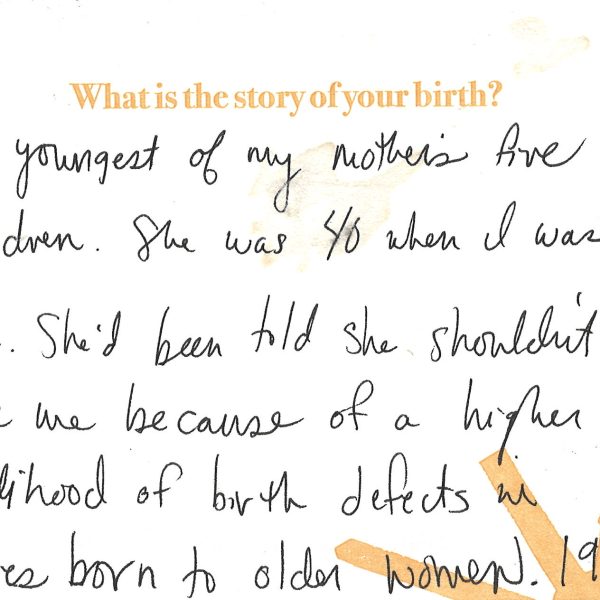 What is the story of your birth?
youngest of my mother's five
dren. She was 40 when I was
. She'd been told she shouldn't
e me because of a higher
lihood of birth defects in
es born to older women. 19